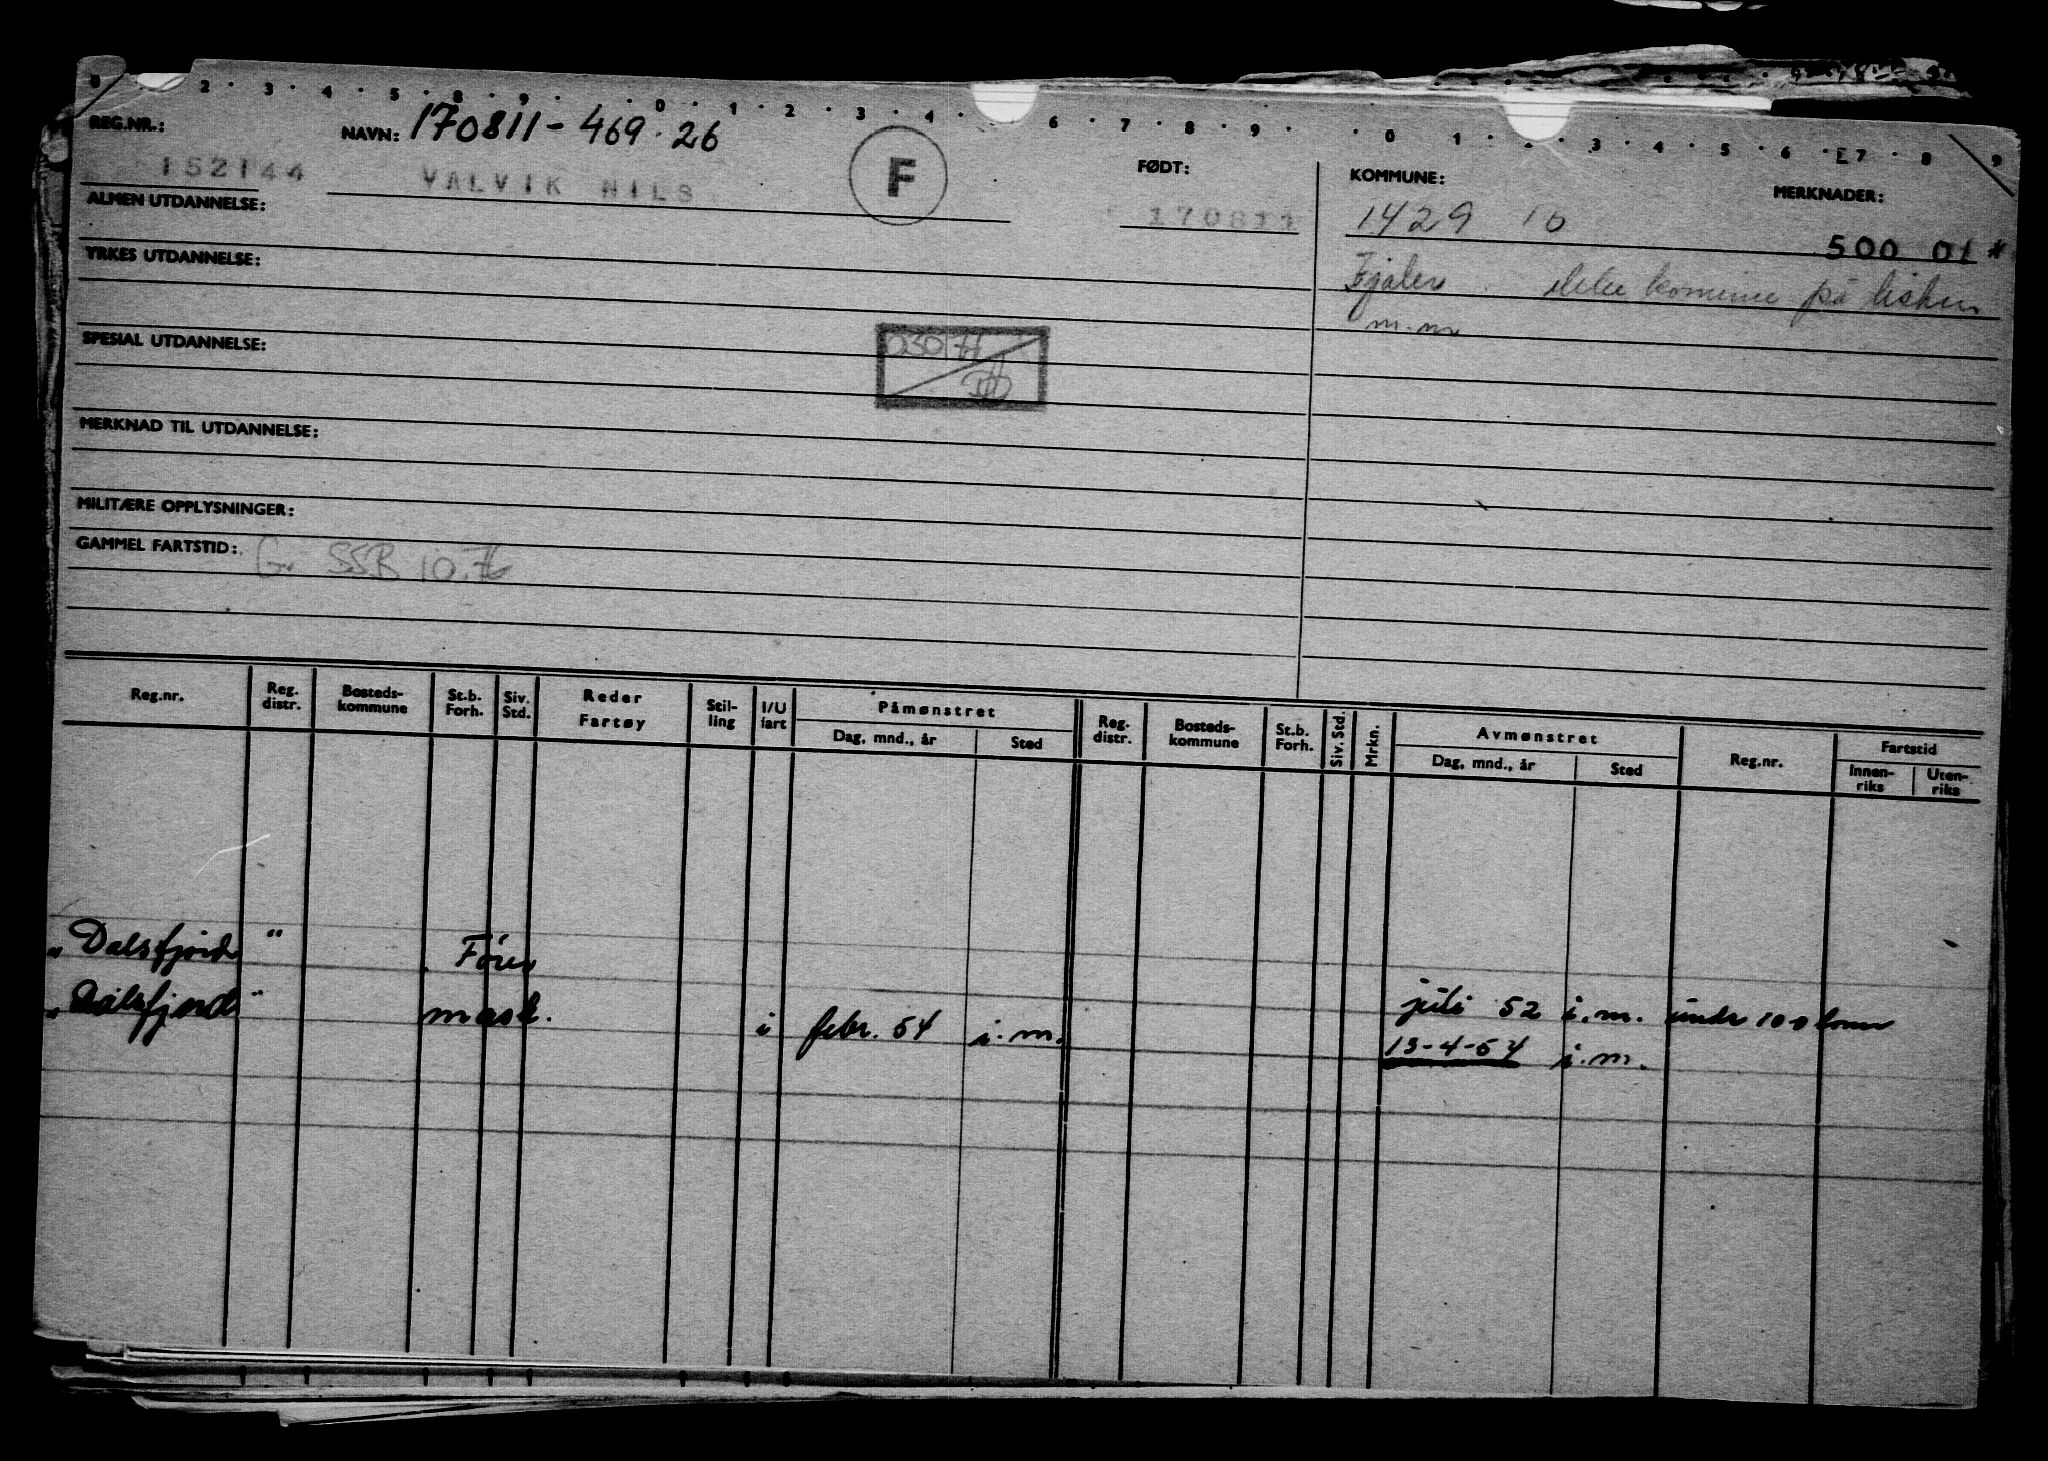 0 2 · 3 · 4 · 5 · 8 · 9 · 0 · 1 · 2 · 3 · 4 · 6 · 7 · 8 · 9 · 0 · 1 · 3 · 4 · 5 · 6 · 7 · 8 9
REG.NR.: NAVN: 170811-469.26 F FØDT: KOMMUNE: MERKNADER:
152144 VALVIK NILS 170811 1429 10 500 01*
ALMEN UTDANNELSE:
YRKES UTDANNELSE:
Fjaler komune på
m.m
SPESIAL UTDANNELSE:
MERKNAD TIL UTDANNELSE:
MILITÆRE OPPLYSNINGER:
GAMMEL FARTSTID: G. SSB 10.76
Reg.nr. Reg. distr. Bosteds-kommune St.b. Forh. Siv. Std. Reder Fartøy Stil-ling I/U fart Påmønstret Reg. distr. Bosteds-kommune St.b. Forh. Siv. Std. Mrkn. Avmønstret Reg.nr. Fartstid
Dag, mnd., år Sted Dag, mnd., år Sted Innen-riks Uten-riks
"Dalsfjord" Fører juli 52 i.m. under 100 tonn
"Dalsfjord" mask. i febr. 54 i.m. 13-4-54 i.m.